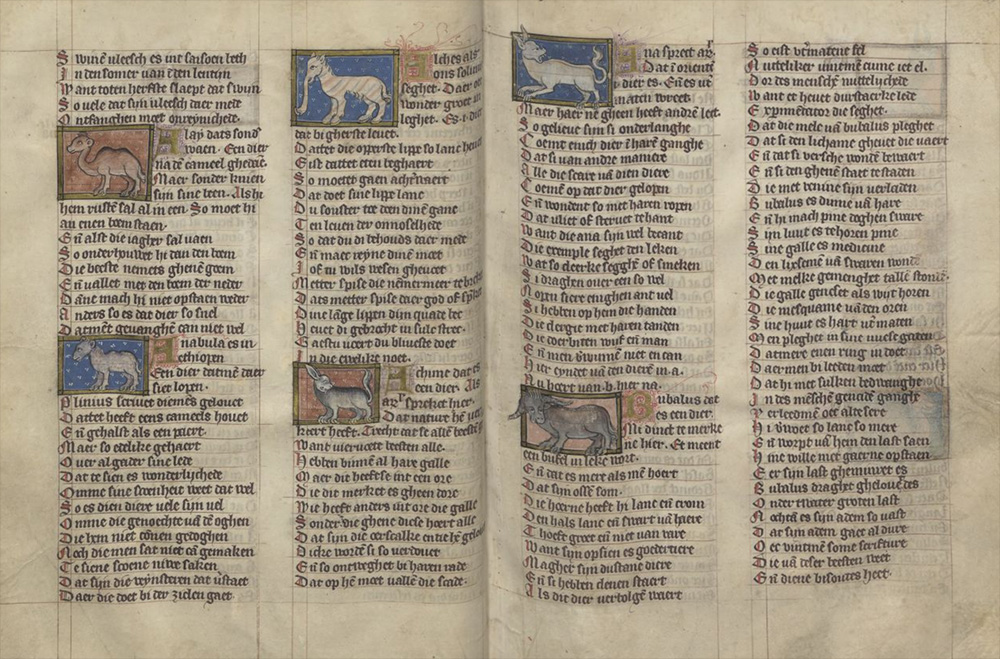 Swinen vleesch es int saisoen best
In den somer van den lentin
Want toten herfste slaept dat swijn
So vele dat sijn vleesch daer mede
Ontfanghen moet onreynichede.
Alay dats sond
waen. Een dier
na den cameel ghedaen.
Maer sonder knien
sijn sine been. Als hi
hem rusten sal al in een. So moet hi
an enen boem staen
En alst die iagher sal vaen
So onderhouwet hi dan den boem
Die beeste nemets ghene goem
En vallet met den boem der neder
Dane mach hi niet opstaen weder
Anders so es dat dier so snel
Datment gevanghen can niet wel
Anabula es in
ethiopen
Een dier datmen daer
siet lopen.
Plinius scrivet diemes gelovet
Dattet heeft eens cameels hovet
En gehalst als een paert
Maer so edelike gehaert
Over al gader sine lede
Dat te sien es wonderlichede
Omme sine scoenheit weet dat wel
So es dien diere vele sijn vel
Omme die genoechte van den oghen
Die hem niet connen gedoghen
Noch die men sat niet can gemaken
Te siene scone niwe saken
Dat sijn die veynsteren dat verstaet
Daer die doet bi der zielen gaet
Alches als
ons solinus
seghet. Daer oec
wonder groet in
leghet. Es .i. dier
dat bi gherste levet.
Dattet die opperste lippe so lanc hevet
Eist dattet eten beghaert
So moetet gaen achterwaert
Dat doet sine lippe lanc
Du sonster toe den dinen ganc
Ten leven der onnoselhede
So dat du di behouds daer mede
En maec reyne dinen moet
Of du wils wesen ghevoet
Metter spise die nemmermeer te breket
Dats metter spise daer god of spreket
Dine lange lippen dijn quade bec
Hevet di gebrocht in sulc strec.
Gaestu voert du bliveste doet
In die ewelike noet.
Achime dat es
een dier. Als
aristoteles sprehet hier.
Dat nature hem ver
keert heeft. Trecht dat se allen beesten geeft
Want viervoete beesten alle.
Hebben binnen al hare galle
Maer die heeftse int een ore
Die die merket es gheen dore
Wie heeft anders int ore die galle
Sonder die ghene diese hoert alle
Dat sijn die oerscalke entie hem geloven
Dicke worden si so verdovet
En so ontweghet bi haren rade
Dat op hem moet vallen die scade.
Ana spreet ar.
Dat in orienten
dier es. En es ut
maten wreet.
Maer haer ne gheen heeft andren leet.
So gelieve sijn si onderlanghe
Coemt enich dier in haren ganghe
Dat si van andre maniere
Alle die scare van dien diere
Coemt op dat dier gelopen
En wondent so met haren ropen
Dat vliet of stervet te hant
Want die ana sijn wel becant
Die exemple seghet den leken
Wat so clerke segghen of spreken
Si draghen over een so wel
Noyen siere enighen ant vel
Si hebben op hem die handen
Die clergie met haren tanden
Die doerbiten wijf en man
En men verwinnen niet en can
Hier eyndet van den diere in .a.
Nu hoert van .b. hier na.
Bubalus dat
es een dier.
Mi dinct te merke
ne hier. Et meent
een bufel in leke wort.
En dat es mere als men hoert
Dat sijn osse som.
Die hoerne heeft hi lanc en crom
Den hals lanc en swart van hare
Thoeft groet en niet van vare
Want sijn opsien es goedertiere
Magher sijn dustane diere
En si hebben clenen staert
Als dit dier vertolghet waert
So eist utermaten fel
Nuttelikeer vintmen cume iet el.
Dor des menschen nuttelichede
Want et hevet durstaerke lede
Experimentator die seghet.
Dat die melc van bubalus pleghet
Dat si den lichame ghevet die vaert
En dat si versche wonden bewaert
En si den ghenen staet te staden
Die met venine sijn verladen
Bubalus es dume van hare
En hi mach pine doghen sware
Sijn luut es te horen pine
Sine galle es medicine
Den lixemen van swaren wonden
Met melke gemenghet tallen stonden
Die galle geneset als wijt horen
Die mesquame van den oren
Sine huut es hart uter maten
Men pleghet in sine nuese gaten
Daermere enen ring in doet
Daer men bi leeden moet
Dat hi met sulken bedwanghe
In des menschen genade ganghe
Verleedmen oec alte sere
Hi vwoet so lanc so mere
En worpt van hem den last saen
Hine wille met gaerne opstaen
Eer sijn last ghemindert es
Bubalus draghet ghelovet des
Onder twater groten last
Nochtan es sijn adem so vast
Dat sijn adem gaet al dure
Oec vintmen some scrifture
Die van deser beesten weet
En diene bisontes heet.